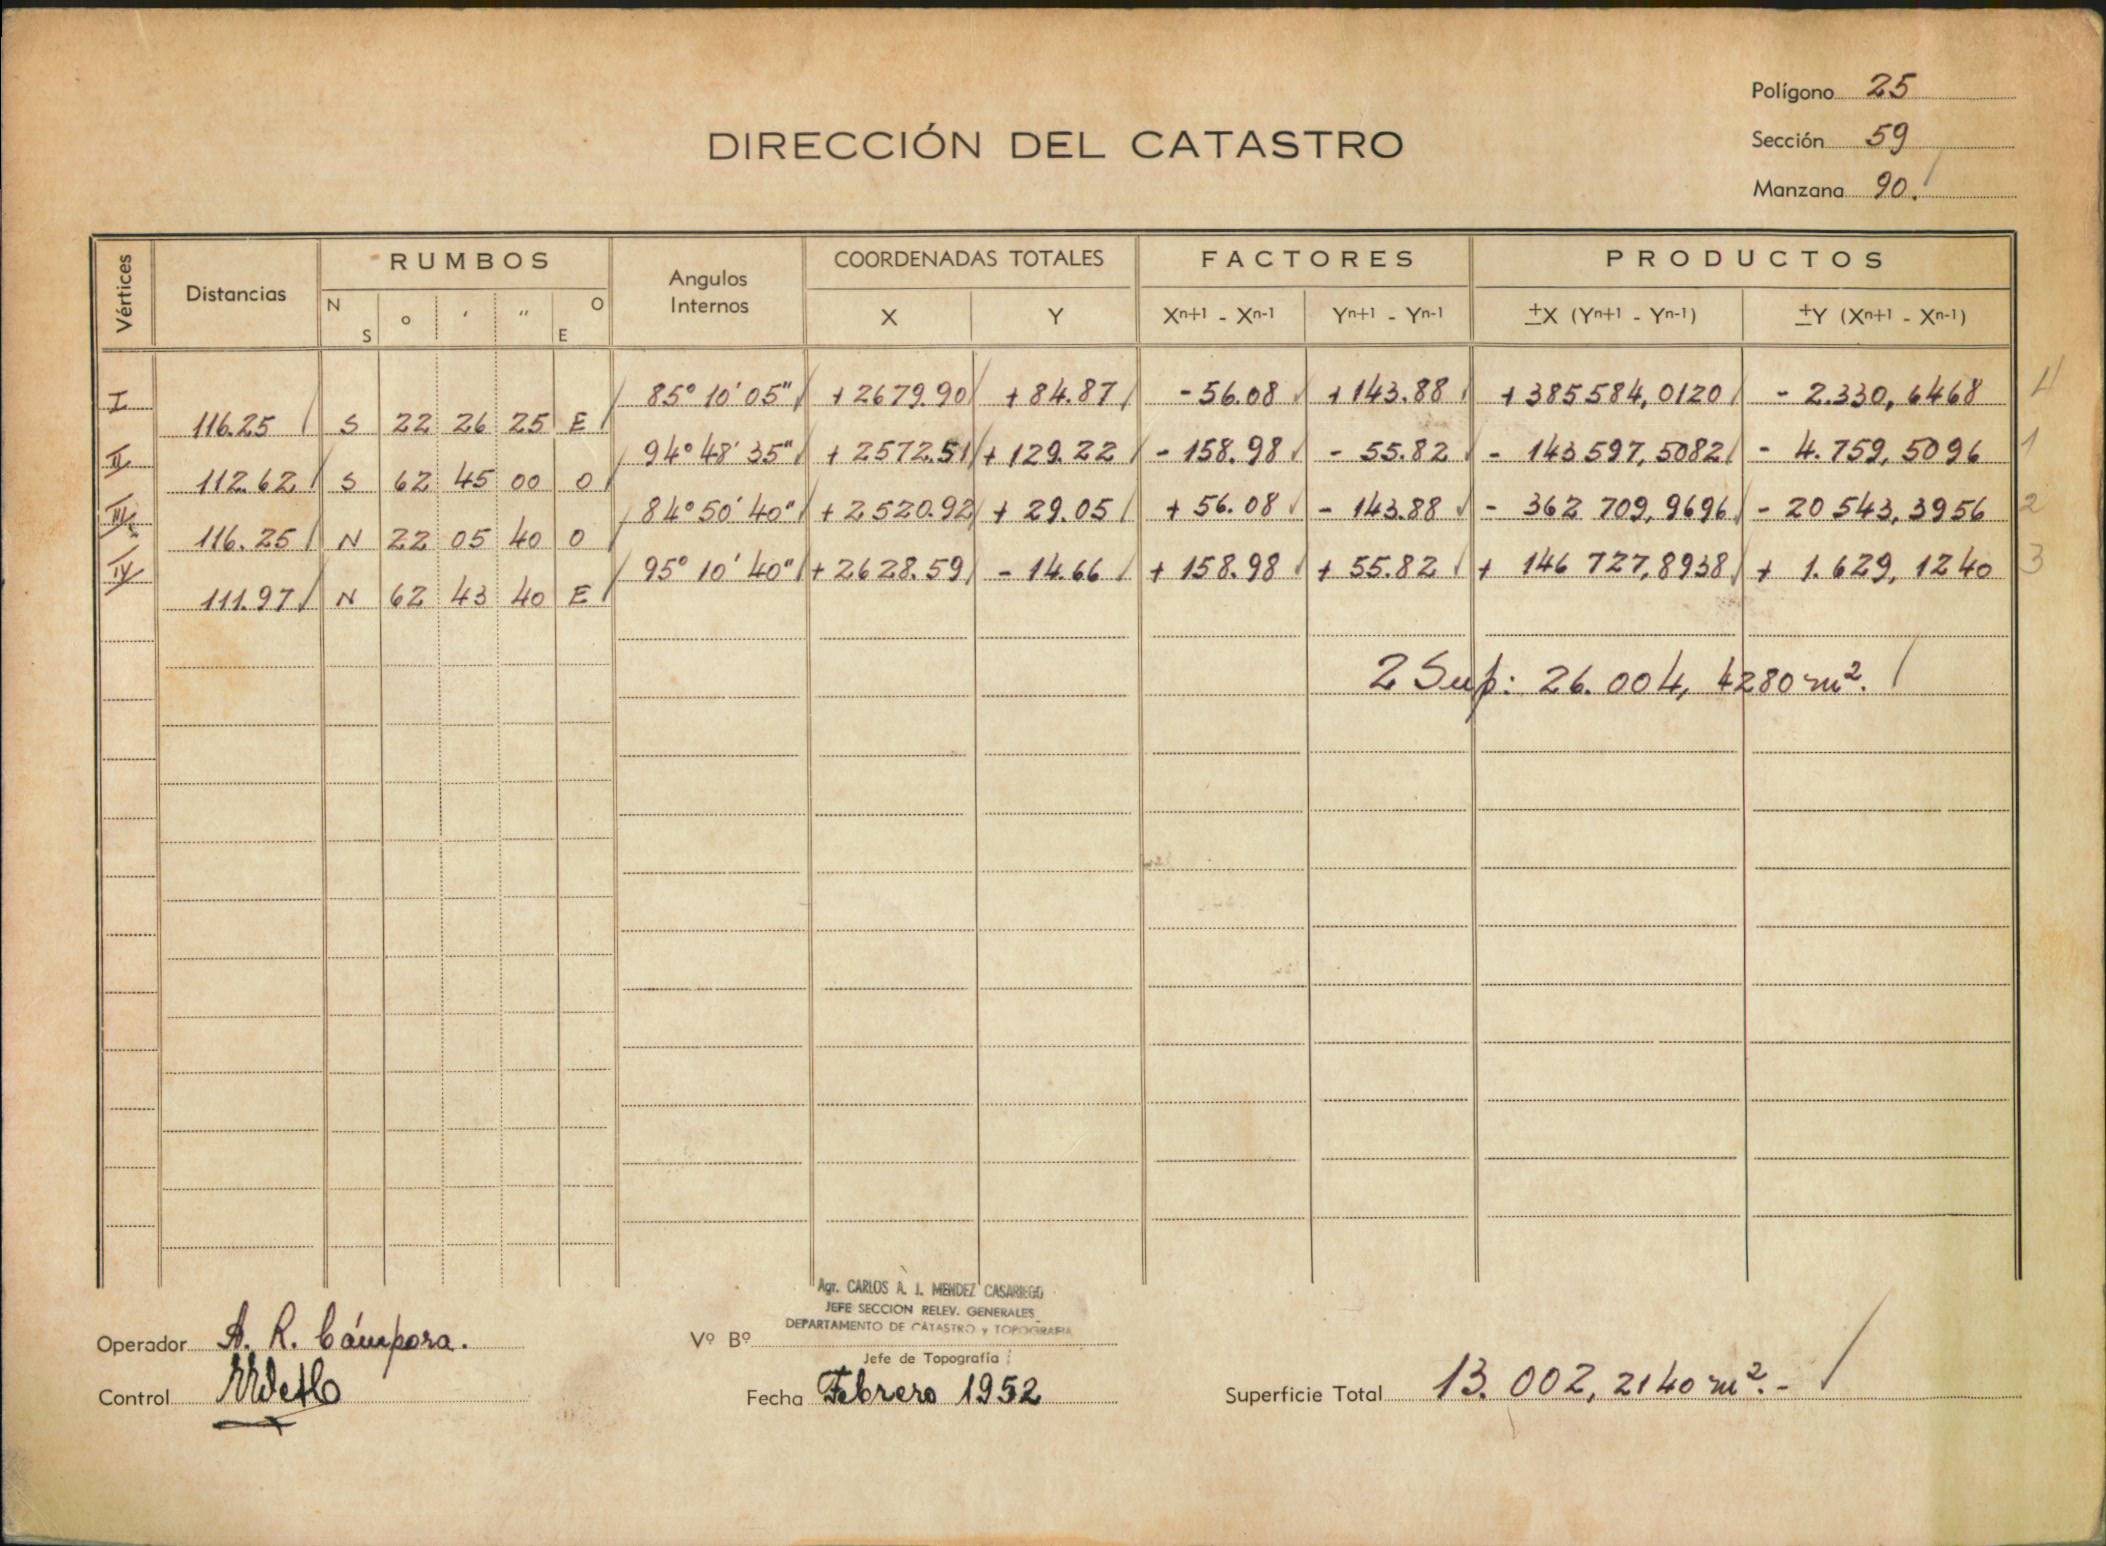 Polígono 25
DIRECCIÓN DEL CATASTRO
Sección 59
Manzana 90.
Vértices Distancias RUMBOS Angulos Internos COORDENADAS TOTALES FACTORES PRODUCTOS
N S o ′ ″ O E X Y Xn+1 - Xn-1 Yn+1 - Yn-1 ±X (Yn+1 - Yn-1) ±Y (Xn+1 - Xn-1)
I 85° 10' 05" +2679.90 +84.87 -56.08 +143.88 +385584,0120 - 2.330,6468 4
116.25 S 22 26 25 E
II 94° 48' 35" +2572.51 +129.22 -158.98 - 55.82 - 143597,5082 - 4.759,5096 1
112.62 S 62 45 00 O
III 84° 50' 40" +2520.92 + 29.05 + 56.08 - 143.88 - 362 709,9696 - 20 543,3956 2
116.25 N 22 05 40 O
IV 95° 10' 40" +2628.59 - 14.66 + 158.98 + 55.82 + 146 727,8938 + 1.629,1240 3
111.97 N 62 43 40 E
2 Sup: 26.004,4280 m².
Agr. CARLOS A. J. MENDEZ CASARIEGO
JEFE SECCION RELEV. GENERALES
DEPARTAMENTO DE CATASTRO y TOPOGRAFIA
Operador A. R. Cámpora.
Vº Bº
Jefe de Topografía
Control
Fecha Febrero 1952
Superficie Total 13.002,2140 m².-